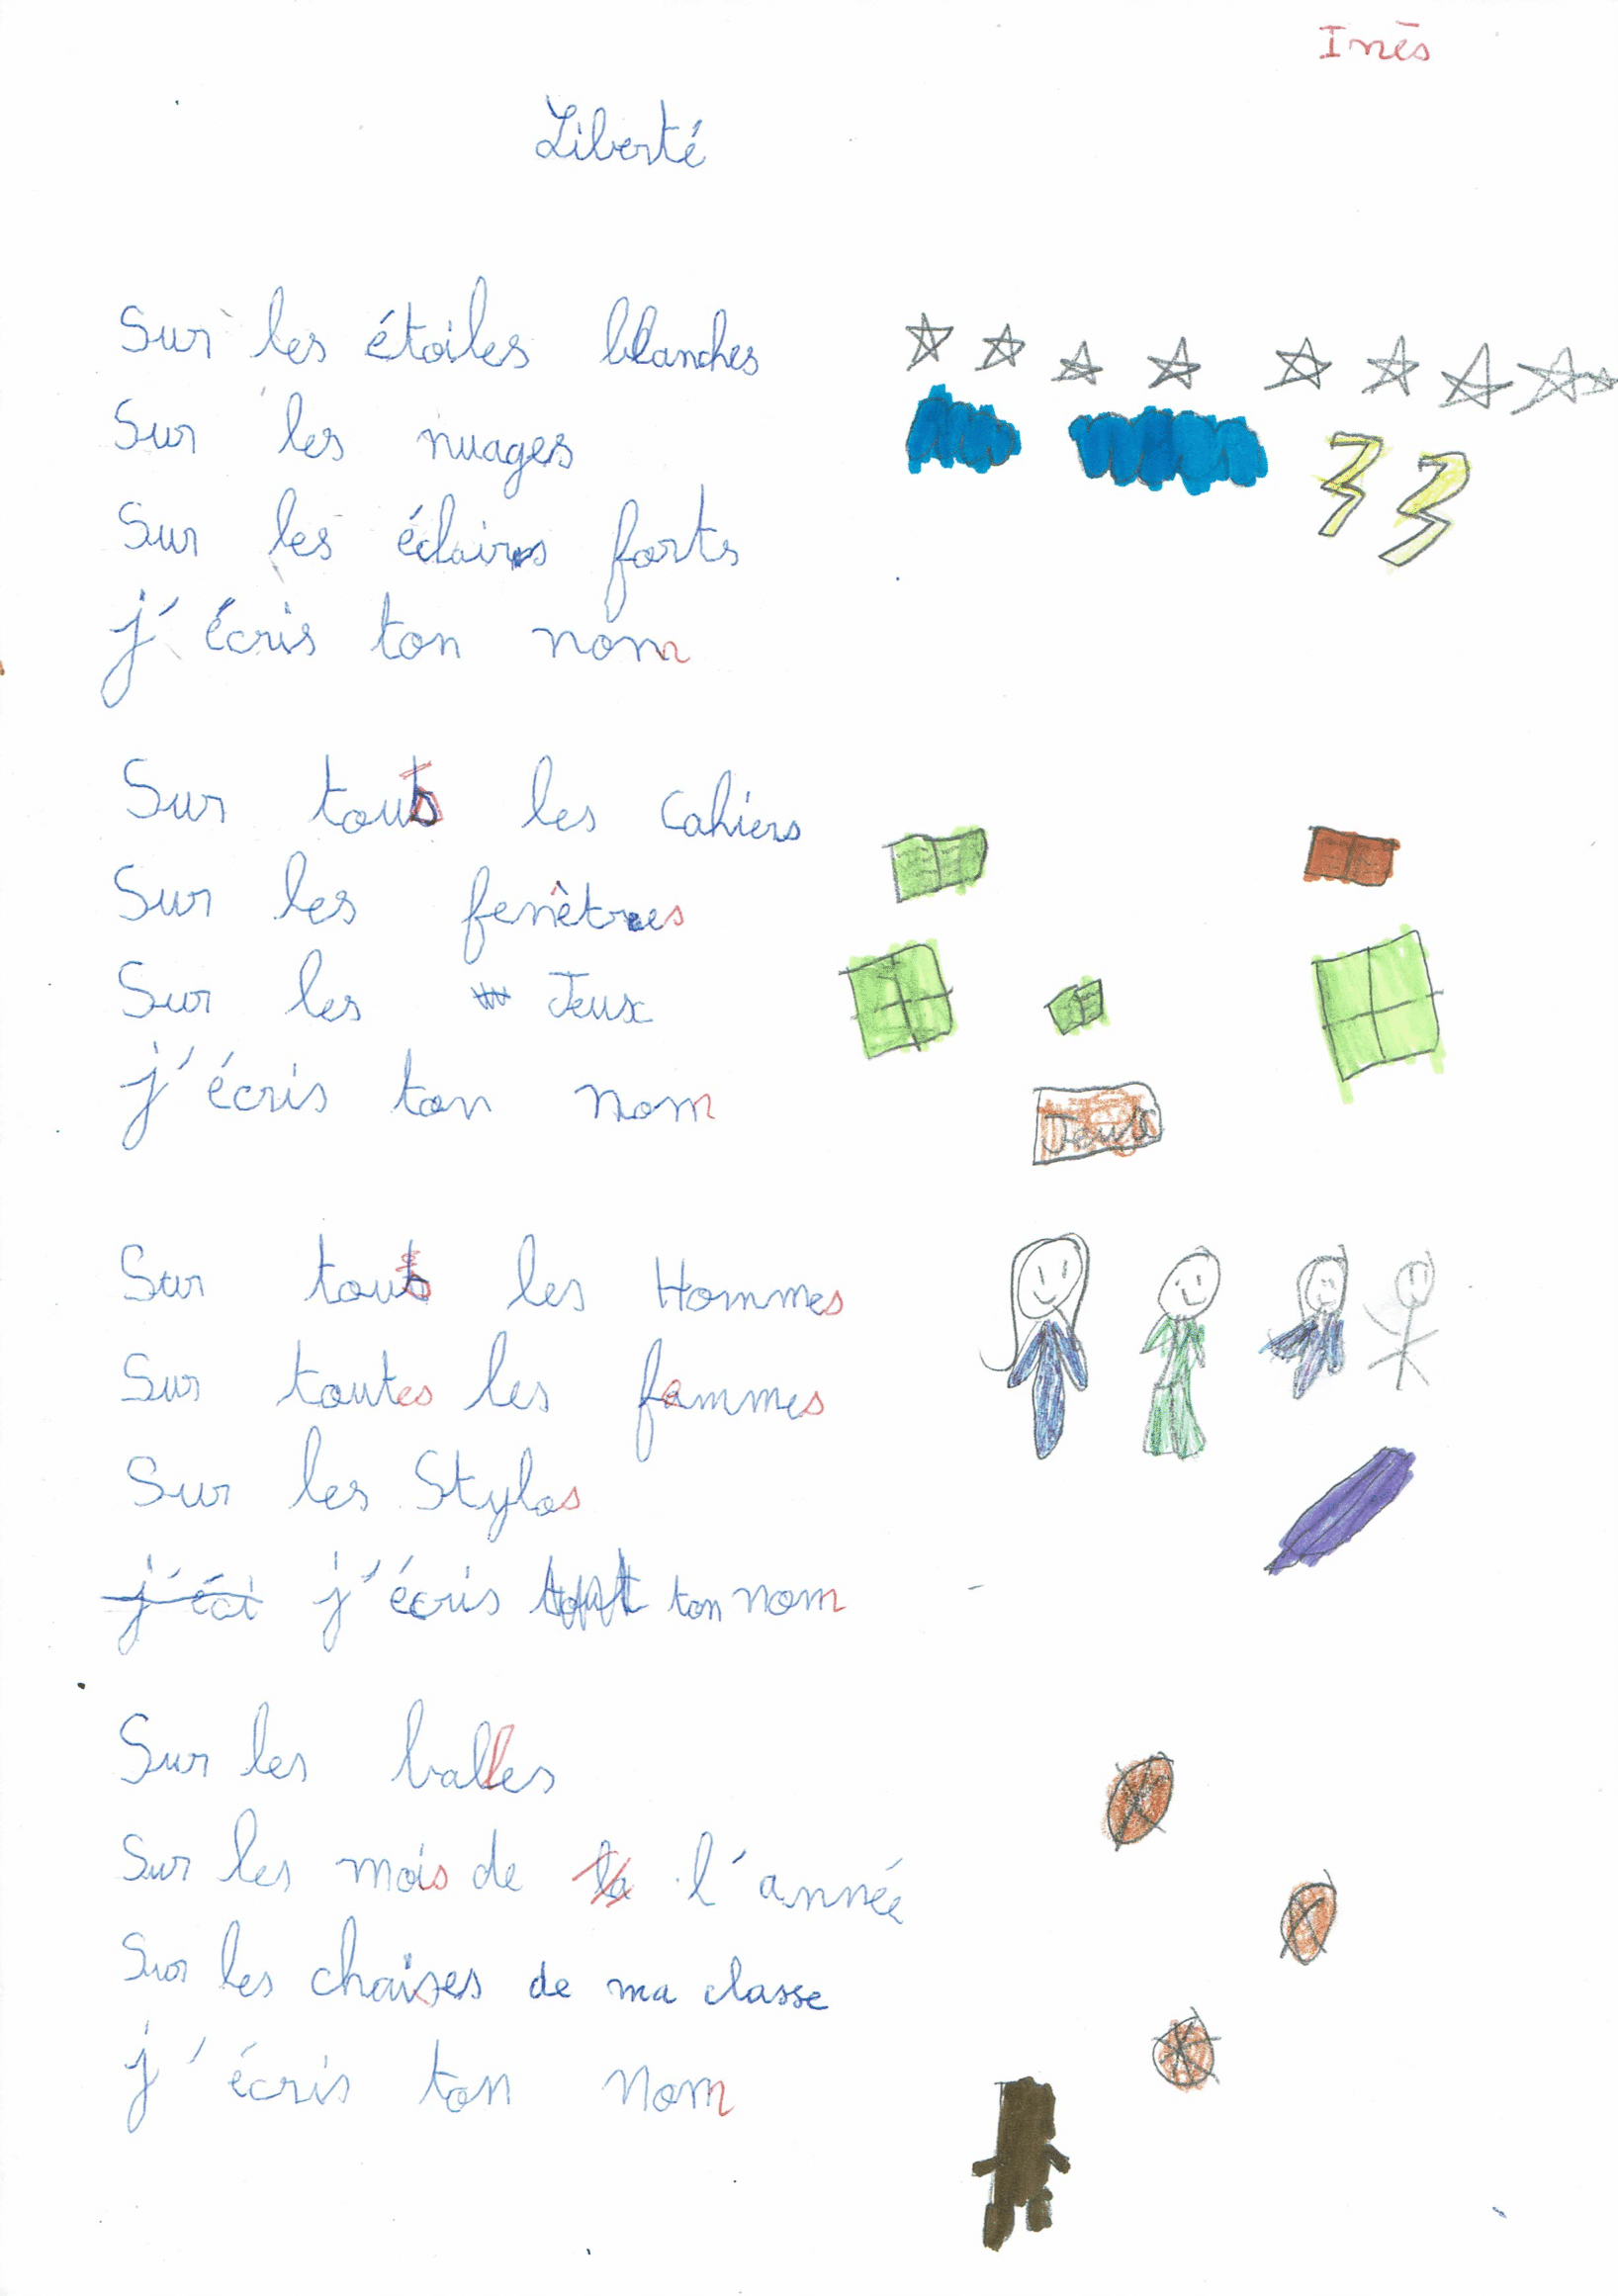 Inès
Liberté
Sur les étoiles blanches
Sur les nuages
Sur les éclairs forts
j'écris ton nom
Sur tous les cahiers
Sur les fenêtres
Sur les Jeux
j'écris ton nom
Sur tous les Hommes
Sur toutes les femmes
Sur les Stylos
j'éci j'écris ton nom
Sur les balles
Sur les mois de la l'année
Sur les chaises de ma classe
j'écris ton nom